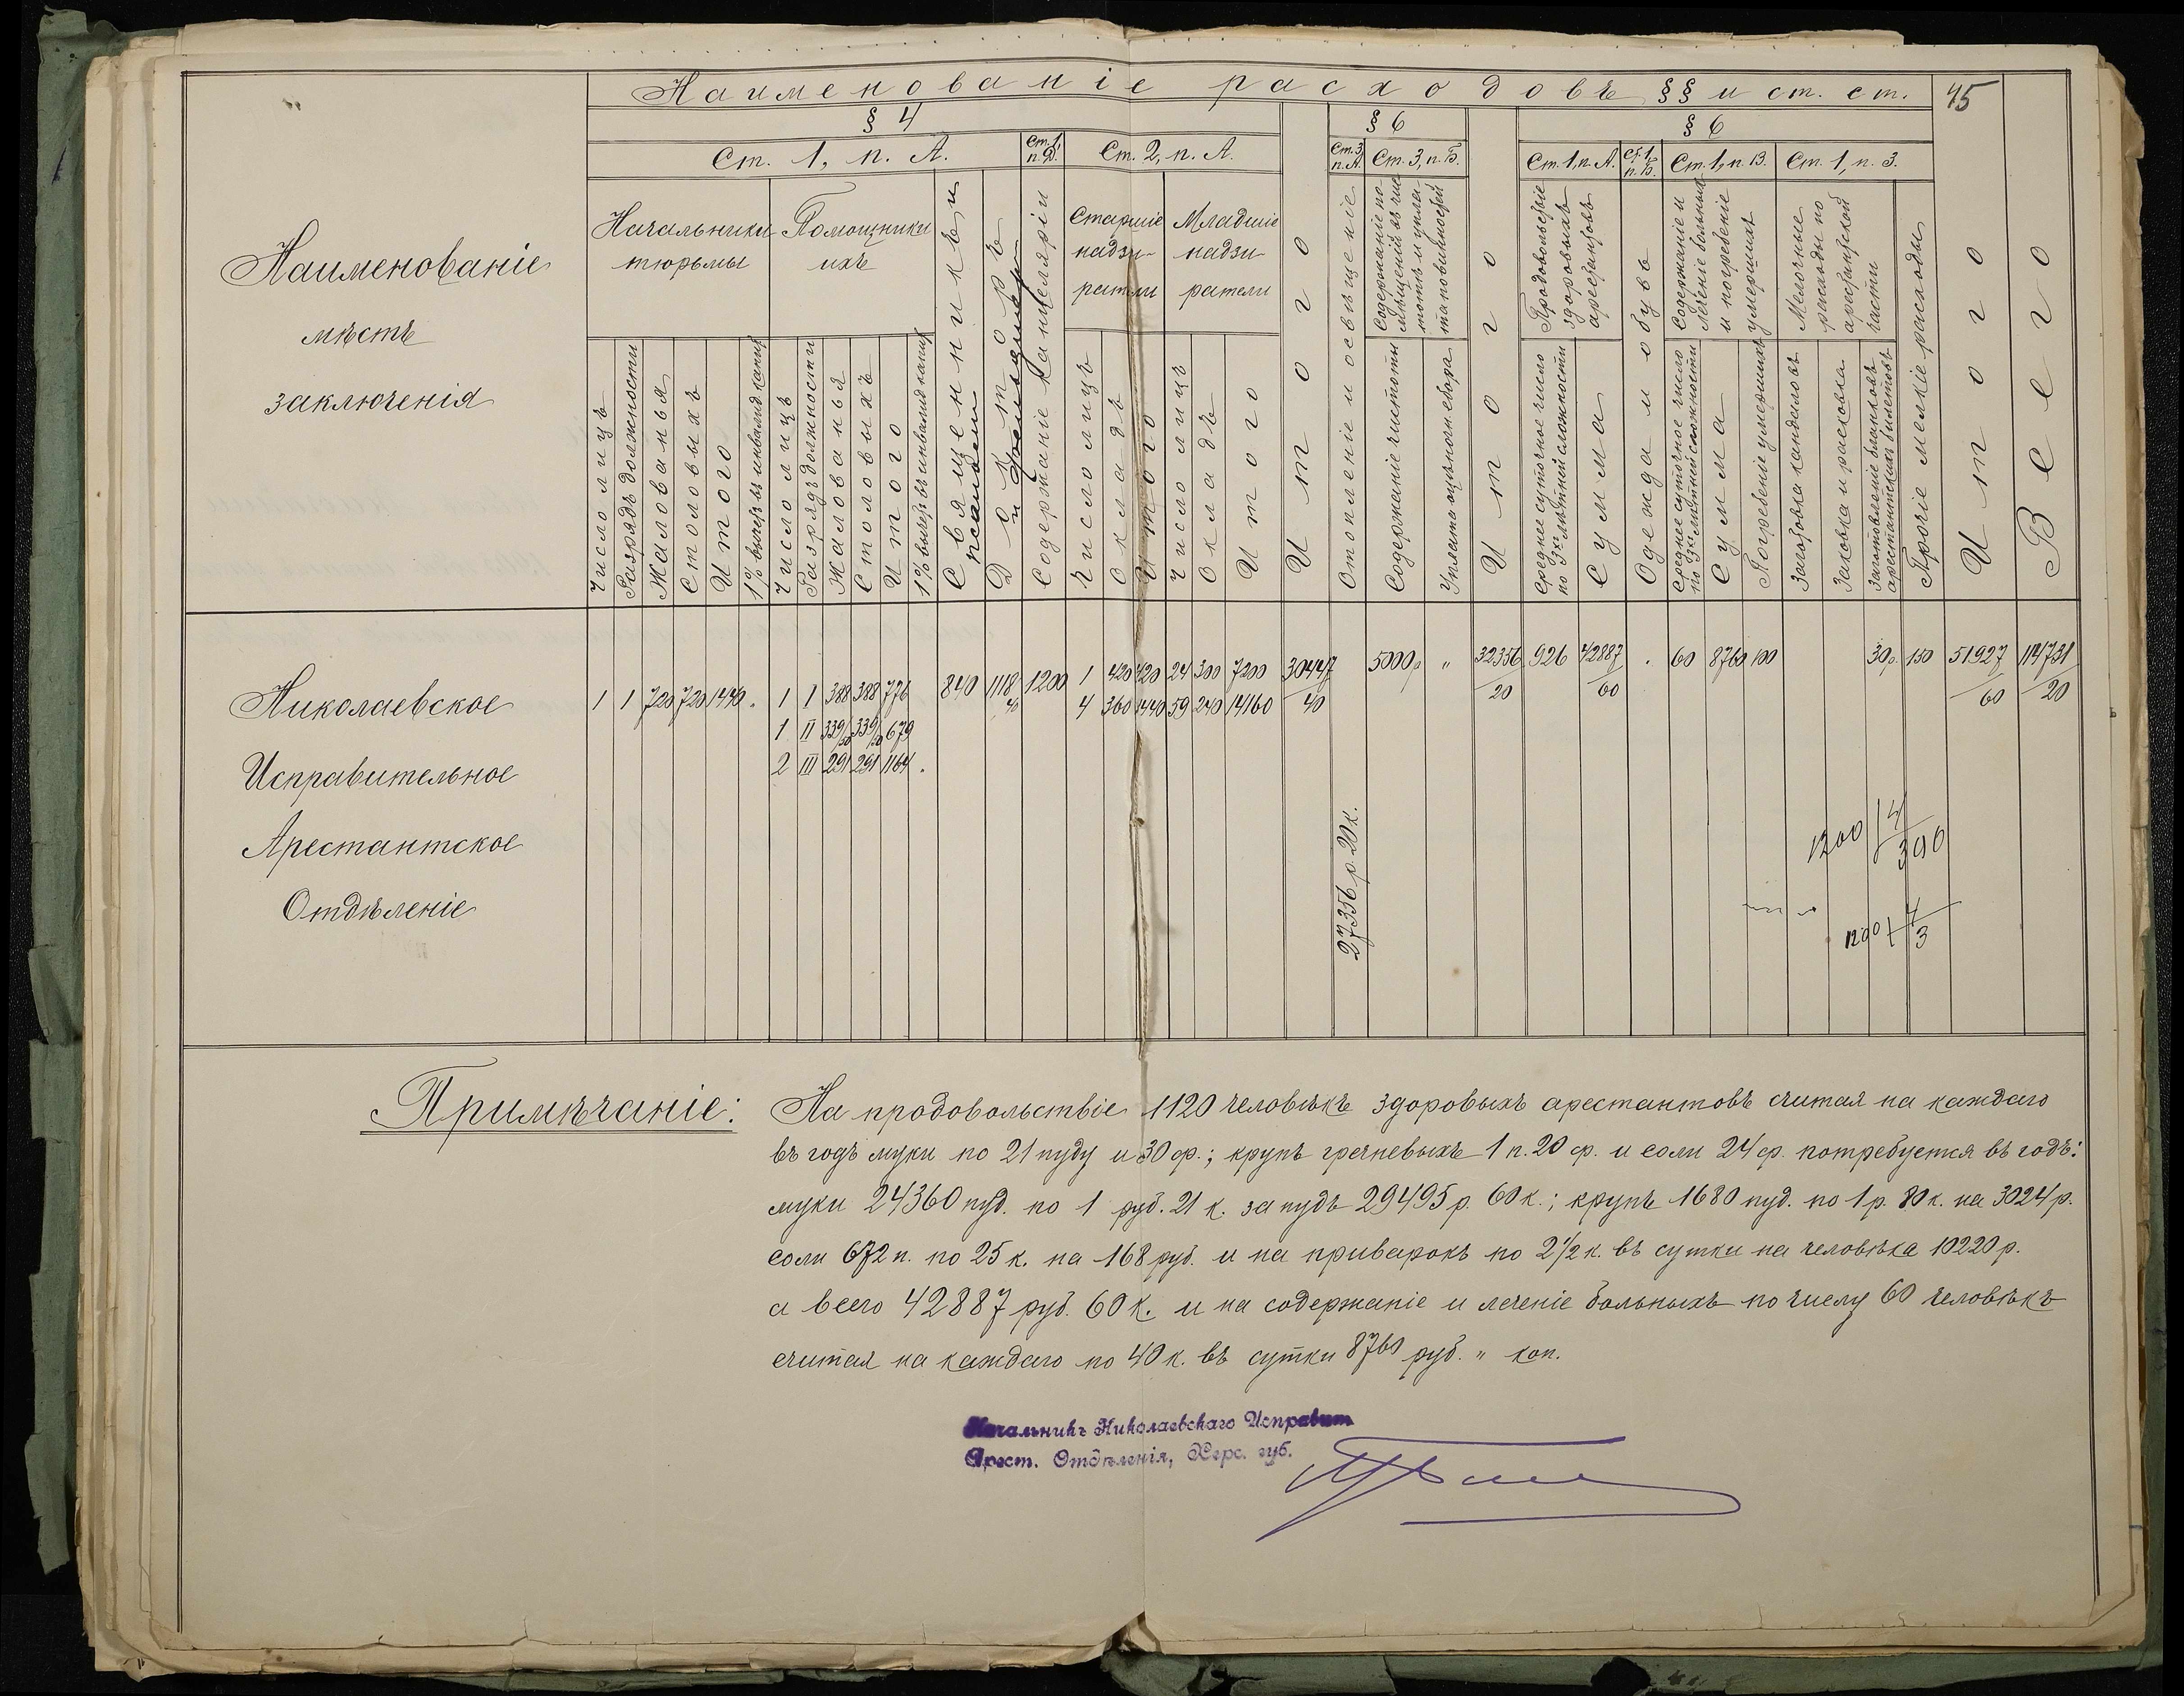 Наименованіе расходовъ §§ и ст. ст.
45
§ 4
§ 6
§ 6
Ст. 1, п. А.
Ст. 1, п. Д.
Ст. 2, п. А.
Ст. 3, п. А
Ст. 3, п. Б.
Ст. 1, п. А.
Ст. 1, п. Б.
Ст. 1, п. В.
Ст. 1, п. З.
Наименованіе
мѣстъ
заключенія
Начальники
тюрьмы
Помощники
ихъ
Священники и
псаломщ
Докторъ
и фельдшер
Содержаніе канцеляріи
Старшіе
надзи-
ратели
Младшіе
надзи-
ратели
Итого
Отопленіе и освѣщеніе
Содержаніе по-
мѣщеній въ чис-
тотѣ и упла-
та повинностей
Итого
Продовольствіе
здоровыхъ
арестантовъ
Одежда и обувь
Содержаніе и
леченіе больныхъ
и погребеніе
умершихъ
Мелочные
расходы по
арестантской
части
Прочіе мелкіе расходы
Итого
Всего
Число лицъ
Разрядъ должности
Жалованья
Столовыхъ
Итого
1% вычетъ въ инвалид. капит.
Число лицъ
Разрядъ должности
Жалованья
Столовыхъ
Итого
1% вычетъ въ инвалид. капит.
Число лицъ
Окладъ
Итого
Число лицъ
Окладъ
Итого
Содержаніе чистоты
Уплата оцѣночн. сбора
Среднее суточное число
по 3хъ лѣтней сложности
Сумма
Среднее суточное число
по 3хъ лѣтней сложности
Сумма
Погребеніе умершихъ
Заготовка кандаловъ
Заковка и расковка
Заготовленіе бланковъ
арестантскихъ билетовъ
Николаевское
Исправительное
Арестантское
Отдѣленіе
1 1 720 720 1440 "
1 I 388 388 776
1 II 339/50 339/50 679
2 III 291 291 1164 "
840 1118/40 1200
1 420 420 24 300 7200
4 360 1440 59 240 14160
30447/40
27356 р. 20 к.
5000 р "
32356/20
926 42887/60 " 60 8760 100
30 р. 150 51927/60 114731/20
1200 4
300
1200 4
3
Примѣчаніе:
На продовольствіе 1120 человѣкъ здоровыхъ арестантовъ считая на каждаго
въ годъ муки по 21 пуду и 30 ф.; крупъ гречневыхъ 1 п. 20 ф. и соли 24 ф. потребуется въ годъ:
муки 24360 пуд. по 1 руб. 21 к. за пудъ 29495 р. 60 к.; крупъ 1680 пуд. по 1 р. 80 к. на 3024 р.
соли 672 п. по 25 к. на 168 руб. и на приварокъ по 2½ к. въ сутки на человѣка 10220 р.
а всего 42887 руб. 60 к. и на содержаніе и леченіе больныхъ по числу 60 человѣкъ
считая на каждаго по 40 к. въ сутки 8760 руб. " коп.
Начальникъ Николаевскаго Исправит
Арест. Отдѣленія, Херс. губ.